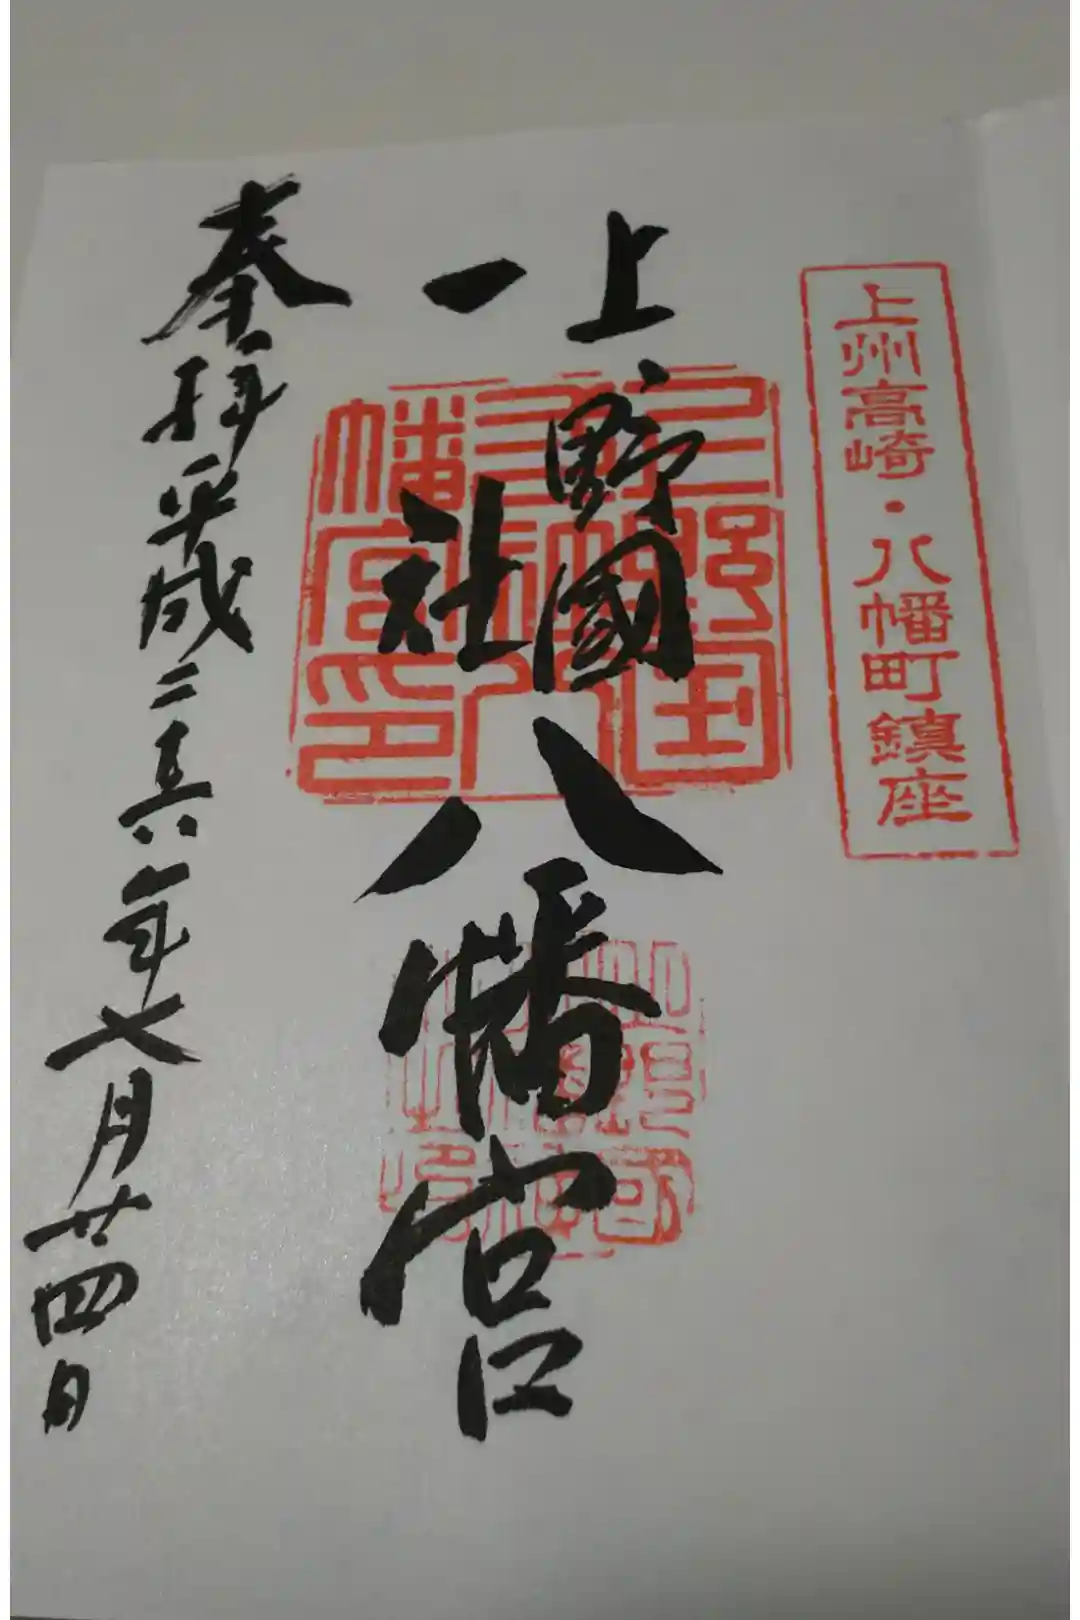 上州高崎・八幡町鎮座
上野國
一社
八幡宮
奉拝 平成二十六年七月廿四日
上野国
幡宮印